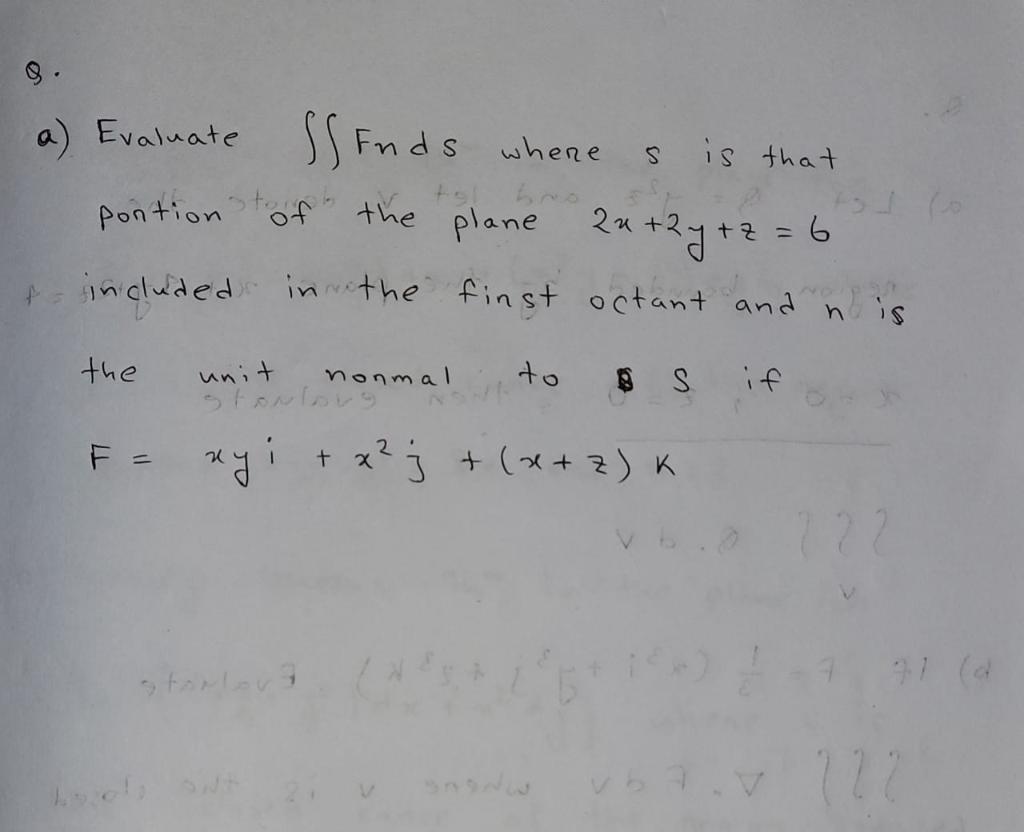 Q.
a) Evaluate ∬ F n d s where s is that
portion of the plane 2x + 2y + z = 6
included in the first octant and n is
the unit normal to S if
F = xyi + x²j + (x + z) K